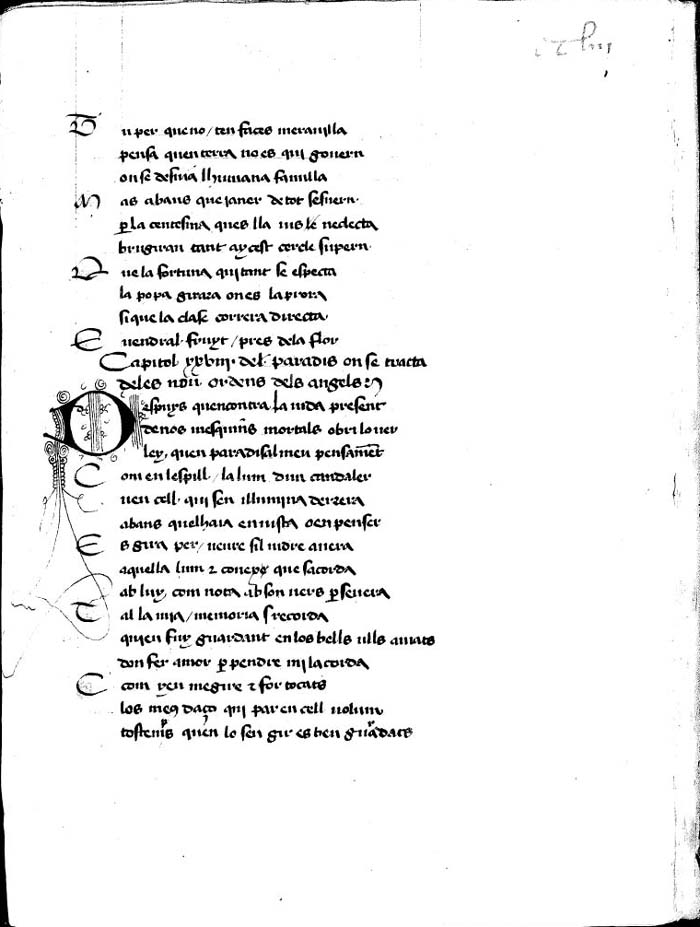 Tu per que no / ten faces meravilla
pensa quen terra no es qui govern
on se desvia llhumana familla
Mas abans que janer de tot sesvern
p̲ la centesma ques lla jus se neclecta
brugiran tant aycest cercle supern
Que la fortuna qui tant se especta
la popa girara on es la prora
si que la classe correra directa
E vendral fruyt / pres dela flor
Capitol xxviii del paradis on se tracta
deles nou ordens dels angels
Despuys quencontra la vida present
de nos mesquins mortals obri lo ver
ley, quen paradisal meu pensament
Com en lespill / la lum dun candaler
veu cell qui sen illumina derrera
abans quel haia en vista o en penser
Es gira per / veure sil vidre avera
aquella lum e coneix que sacorda
ab luy com nota ab son vers p̲severa
Tal la mia / memoria srecorda
quien fuy guardant en los bells ulls amats
don fer amor p̲ pendre mi la corda
E com yeu me gire e for tocats
los meus daço qui par en cell volum
tostemps quen lo seu gir es ben guardats